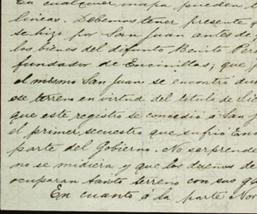 En cualquier mapa pueden t
líneas. Debemos tener presente q
se hizo por San Juan antes de
los bienes del difunto Benito Per
fundador de Encinillas, que
el mismo San Juan se encontró due
ese terreno en virtud del título de Si
que este registro se concedió a San J
el primer secuestro que sufrió Enc
parte del Gobierno. Me sorprende
no se midiera y que los dueños de
ocuparan tanto terreno con sus ga
En cuanto á la parte Nor